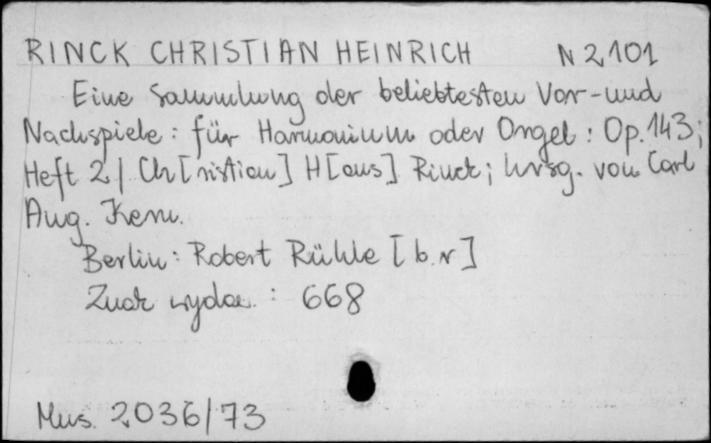 RINCK CHRISTIAN HEINRICH N 2101
Eine Sammlung der beliebtesten Vor-und
Nachspiele: für Harmonium oder Orgel: Op.143;
Heft 2 / Ch[ristian] H[ans] Rinck; hrsg. von Carl
Aug. Kern.
Berlin: Robert Rühle [b.r]
Znak wydaw.: 668
Mus. 2036/73